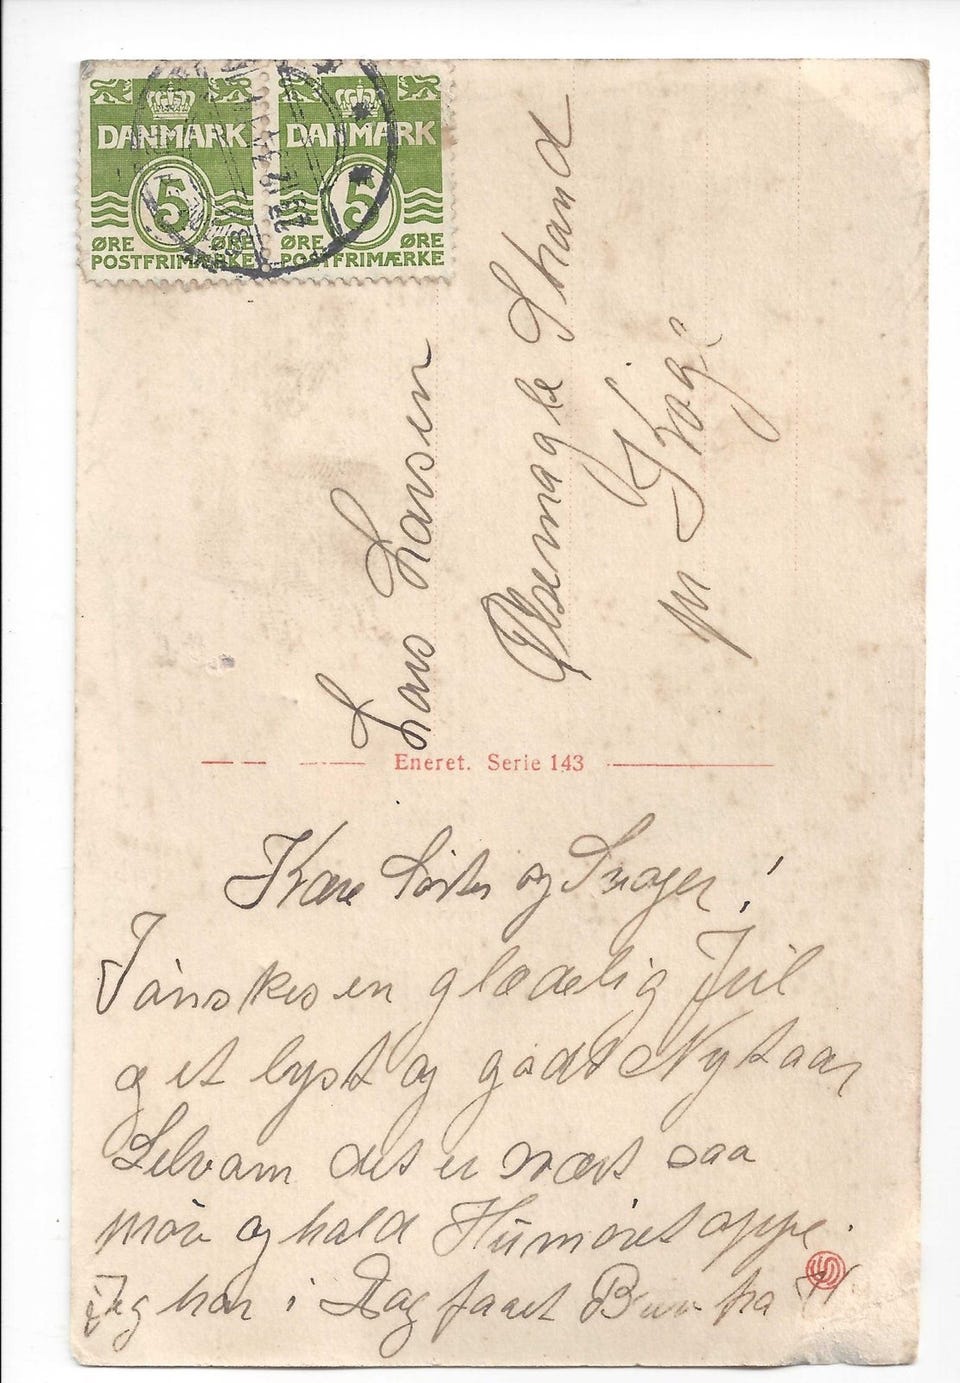 DANMARK DANMARK
5 5
ØRE ØRE ØRE ØRE
POSTFRIMÆRKE POSTFRIMÆRKE
Lars Larsen
Ølsemagle Strand
pr Køge
Eneret. Serie 143
Kære Søster og Svoger!
I önskes en glædelig Jul
og et lyst og godt Nytaar
Selvom det er svært saa
prøv og hold Humöret oppe.
Jeg har i Dag faaet Brev fra